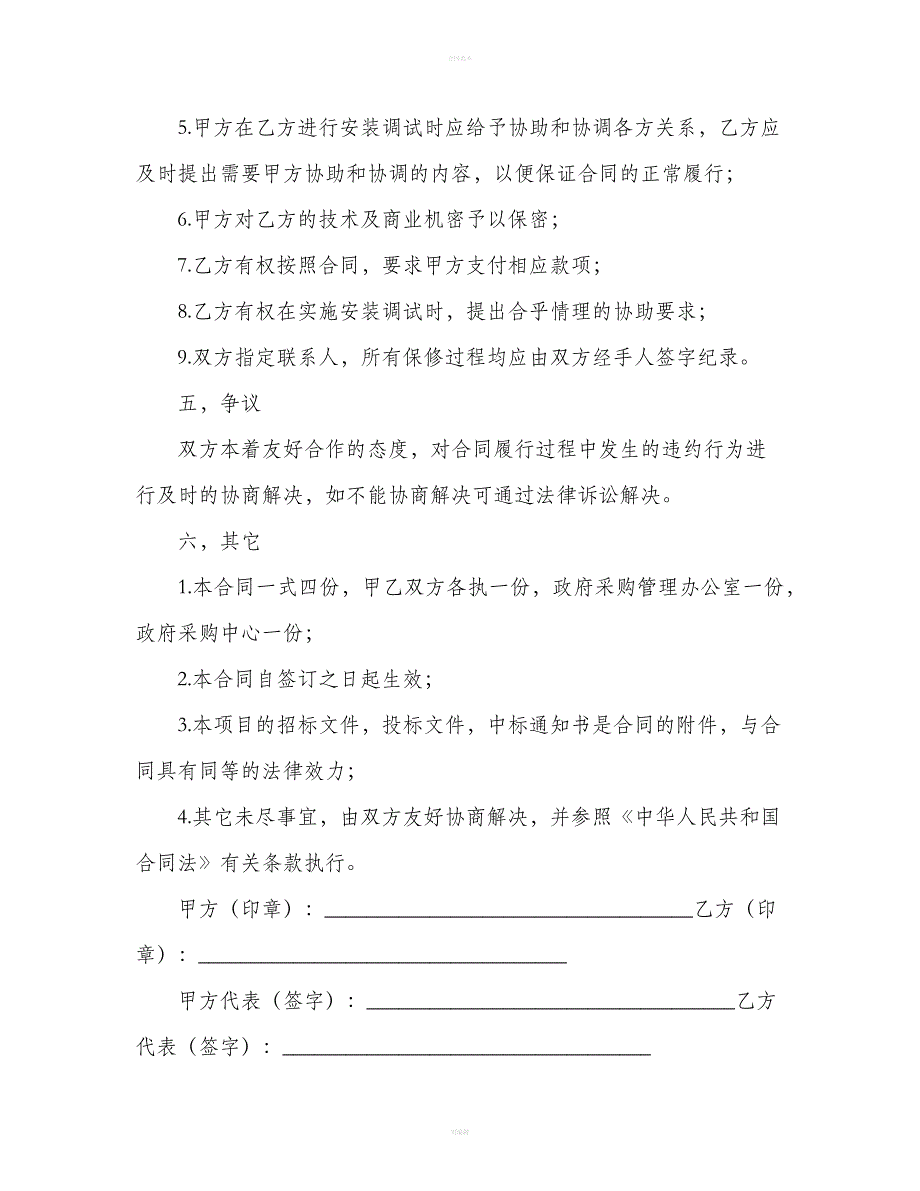 5.甲方在乙方进行安装调试时应给予协助和协调各方关系，乙方应
及时提出需要甲方协助和协调的内容，以便保证合同的正常履行；
6.甲方对乙方的技术及商业机密予以保密；
7.乙方有权按照合同，要求甲方支付相应款项；
8.乙方有权在实施安装调试时，提出合乎情理的协助要求；
9.双方指定联系人，所有保修过程均应由双方经手人签字纪录。
五，争议
双方本着友好合作的态度，对合同履行过程中发生的违约行为进
行及时的协商解决，如不能协商解决可通过法律诉讼解决。
六，其它
1.本合同一式四份，甲乙双方各执一份，政府采购管理办公室一份，
政府采购中心一份；
2.本合同自签订之日起生效；
3.本项目的招标文件，投标文件，中标通知书是合同的附件，与合
同具有同等的法律效力；
4.其它未尽事宜，由双方友好协商解决，并参照《中华人民共和国
合同法》有关条款执行。
甲方（印章）：___________________________________乙方（印
章）：___________________________________
甲方代表（签字）：___________________________________乙方
代表（签字）：___________________________________